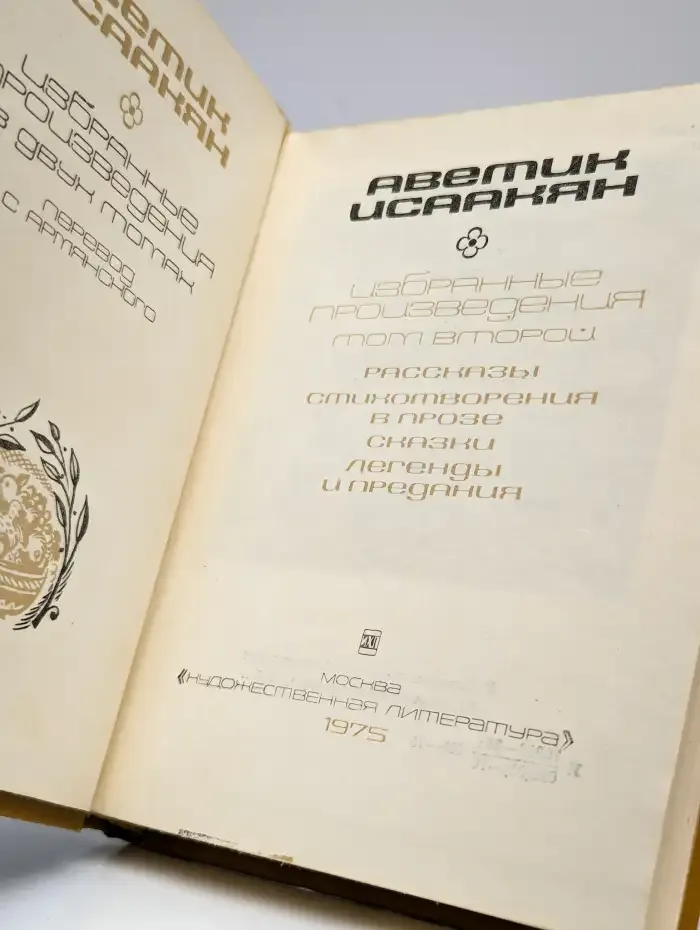 Аветик
Исаакян
Избранные
произведения
в двух томах
Перевод
с армянского
Аветик
Исаакян
Избранные
произведения
том второй
Рассказы
Стихотворения
в прозе
Сказки
Легенды
и предания
Москва
«Художественная литература»
1975